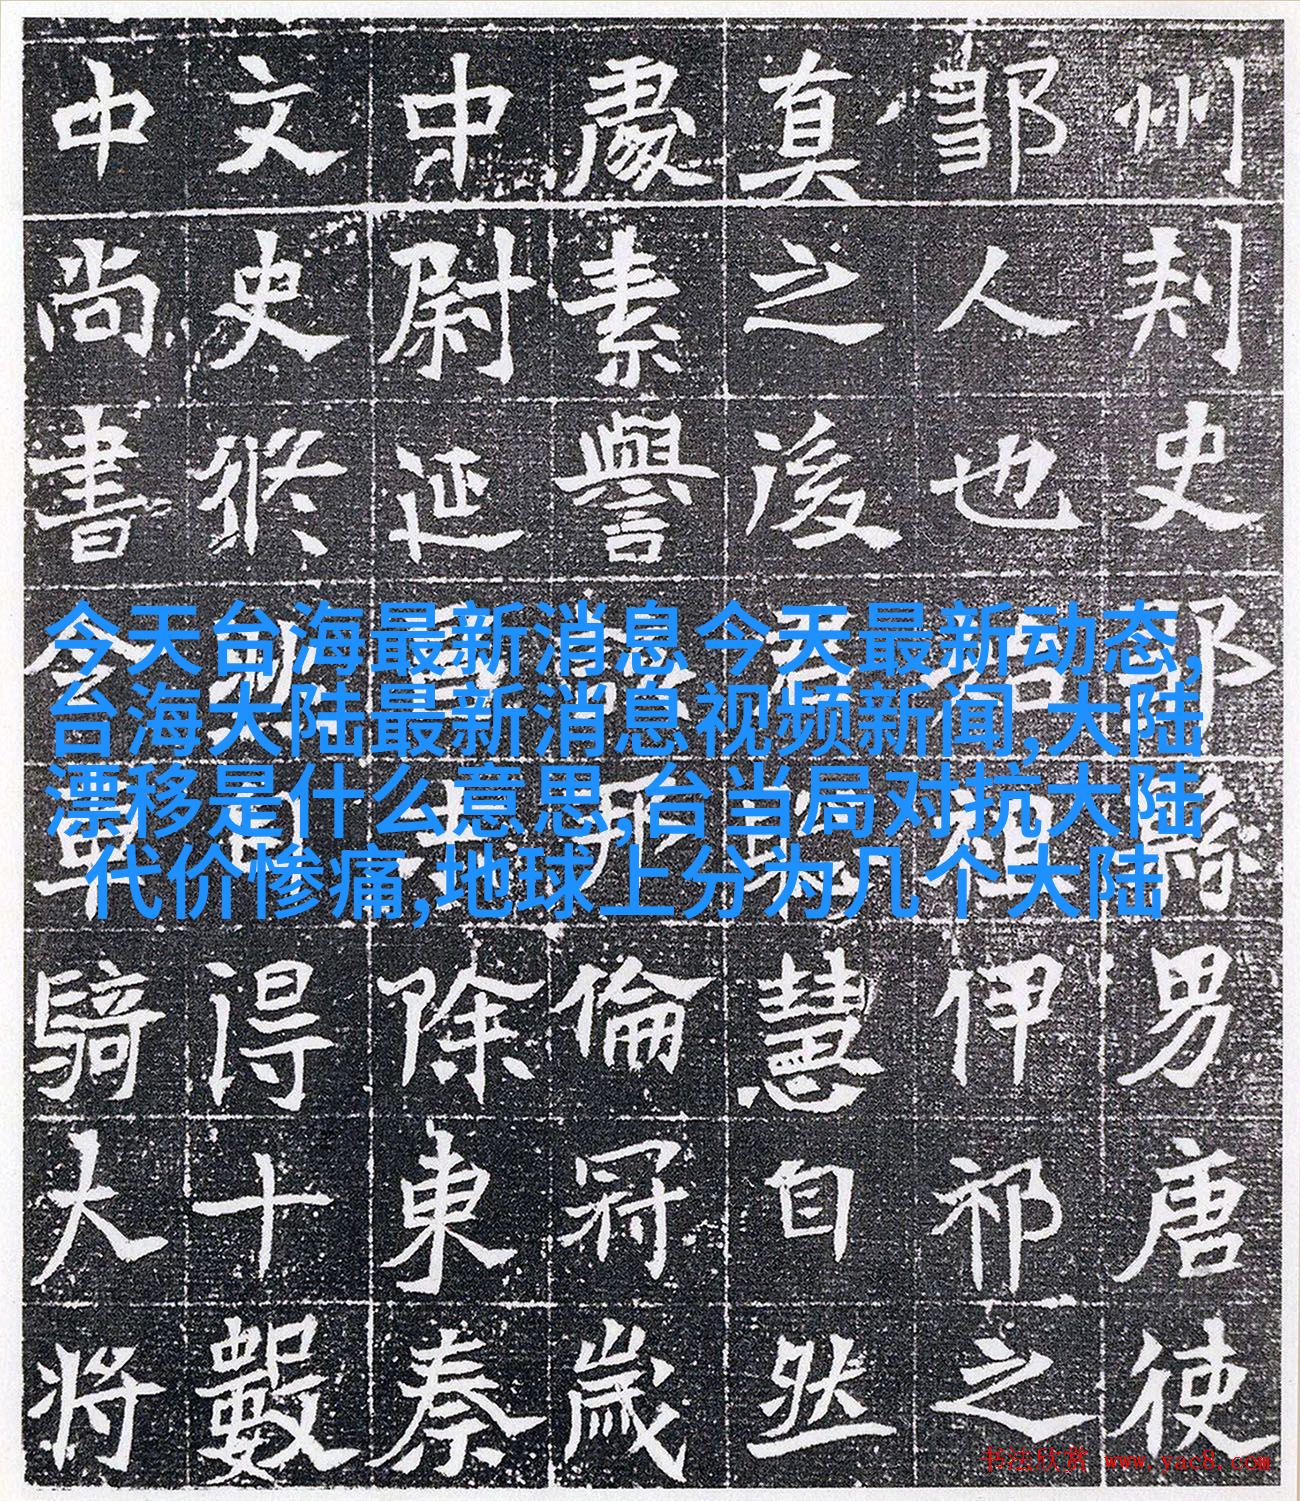 州刺史縣男唐使
鄒人也祖伊祁之
真之後君慧自然
處素譽形倫冠歲
中尉延除東秦
文史修得十數
中尚書令車騎大將
今天台海最新消息今天最新动态,
台海大陆最新消息视频新闻,大陆
漂移是什么意思,台当局对抗大陆
代价惨痛,地球上分为几个大陆
书法欣赏 www.yac8.com